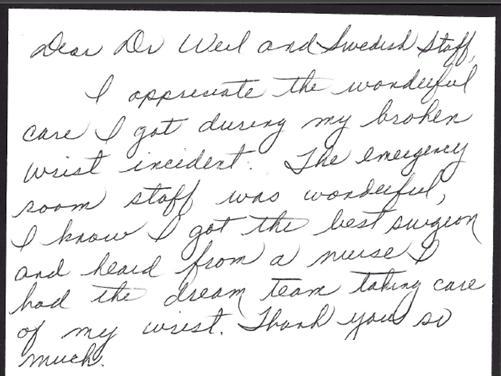 Dear Dr Weil and Swedish Staff,
I appreciate the wonderful
care I got during my broken
wrist incident. The emergency
room staff was wonderful,
I know I got the best surgeon
and heard from a nurse I
had the dream team taking care
of my wrist. Thank you so
much.